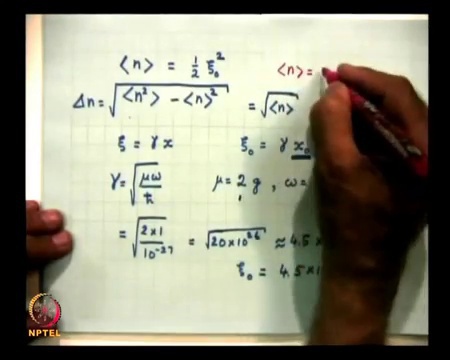 <n> = 1/2 ξ₀²
<n> =
Δn = √(<n²> - <n>²) = √<n>
ξ = γx ξ₀ = γ x₀
γ = √(μω/ħ) μ = 2 g, ω =
= √(2×1/10⁻²⁷) = √(20×10²⁶) ≈ 4.5 ×
ξ₀ = 4.5 × 1
NPTEL